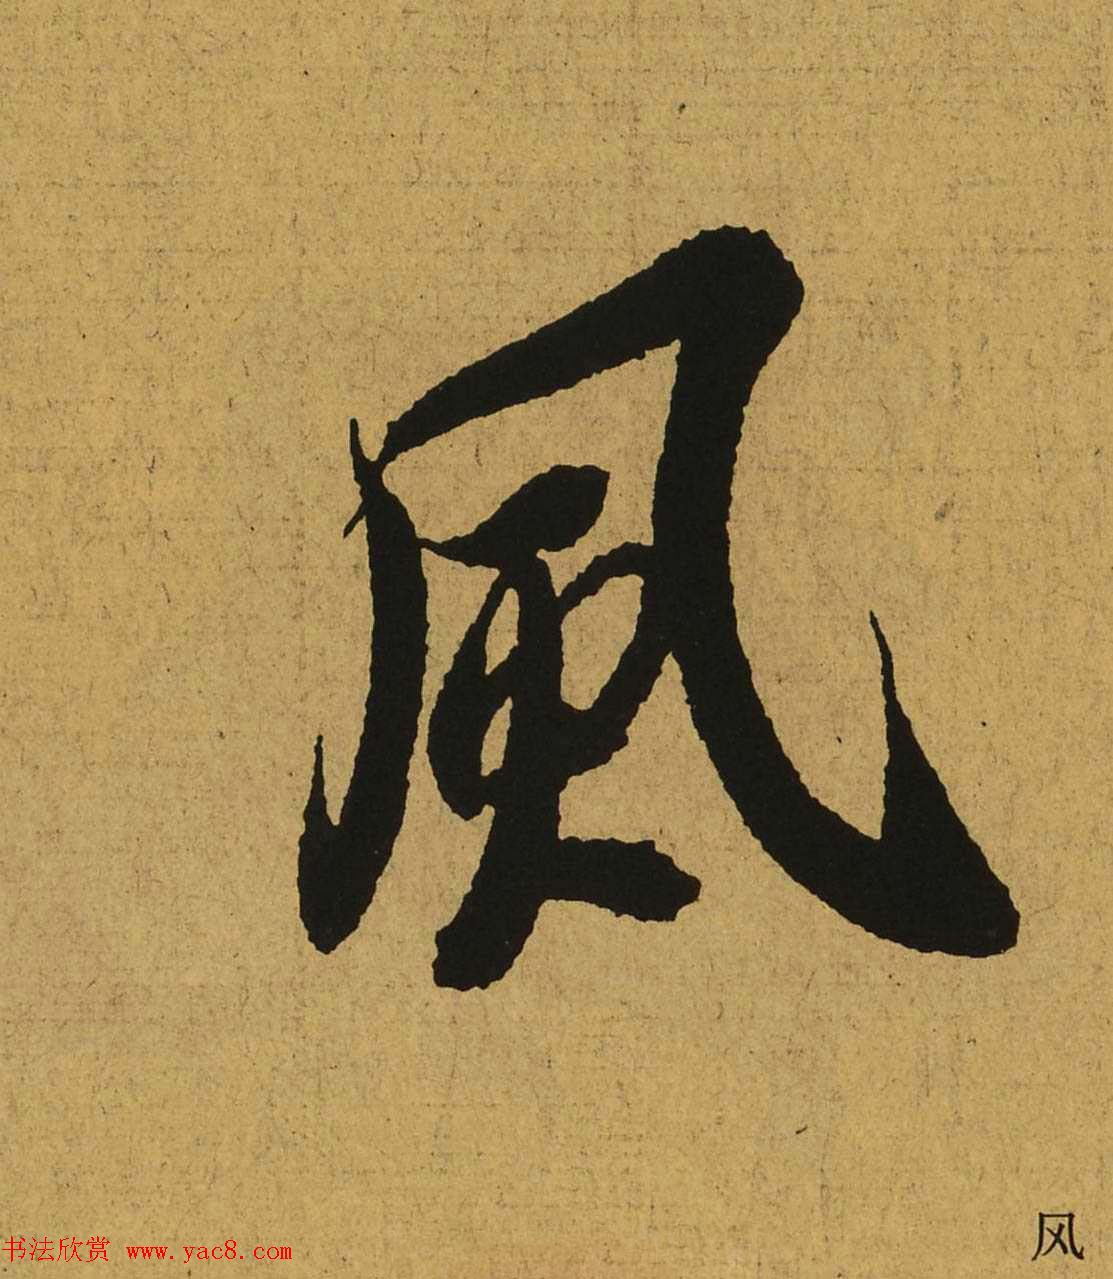 風
风
书法欣赏 www.yac8.com